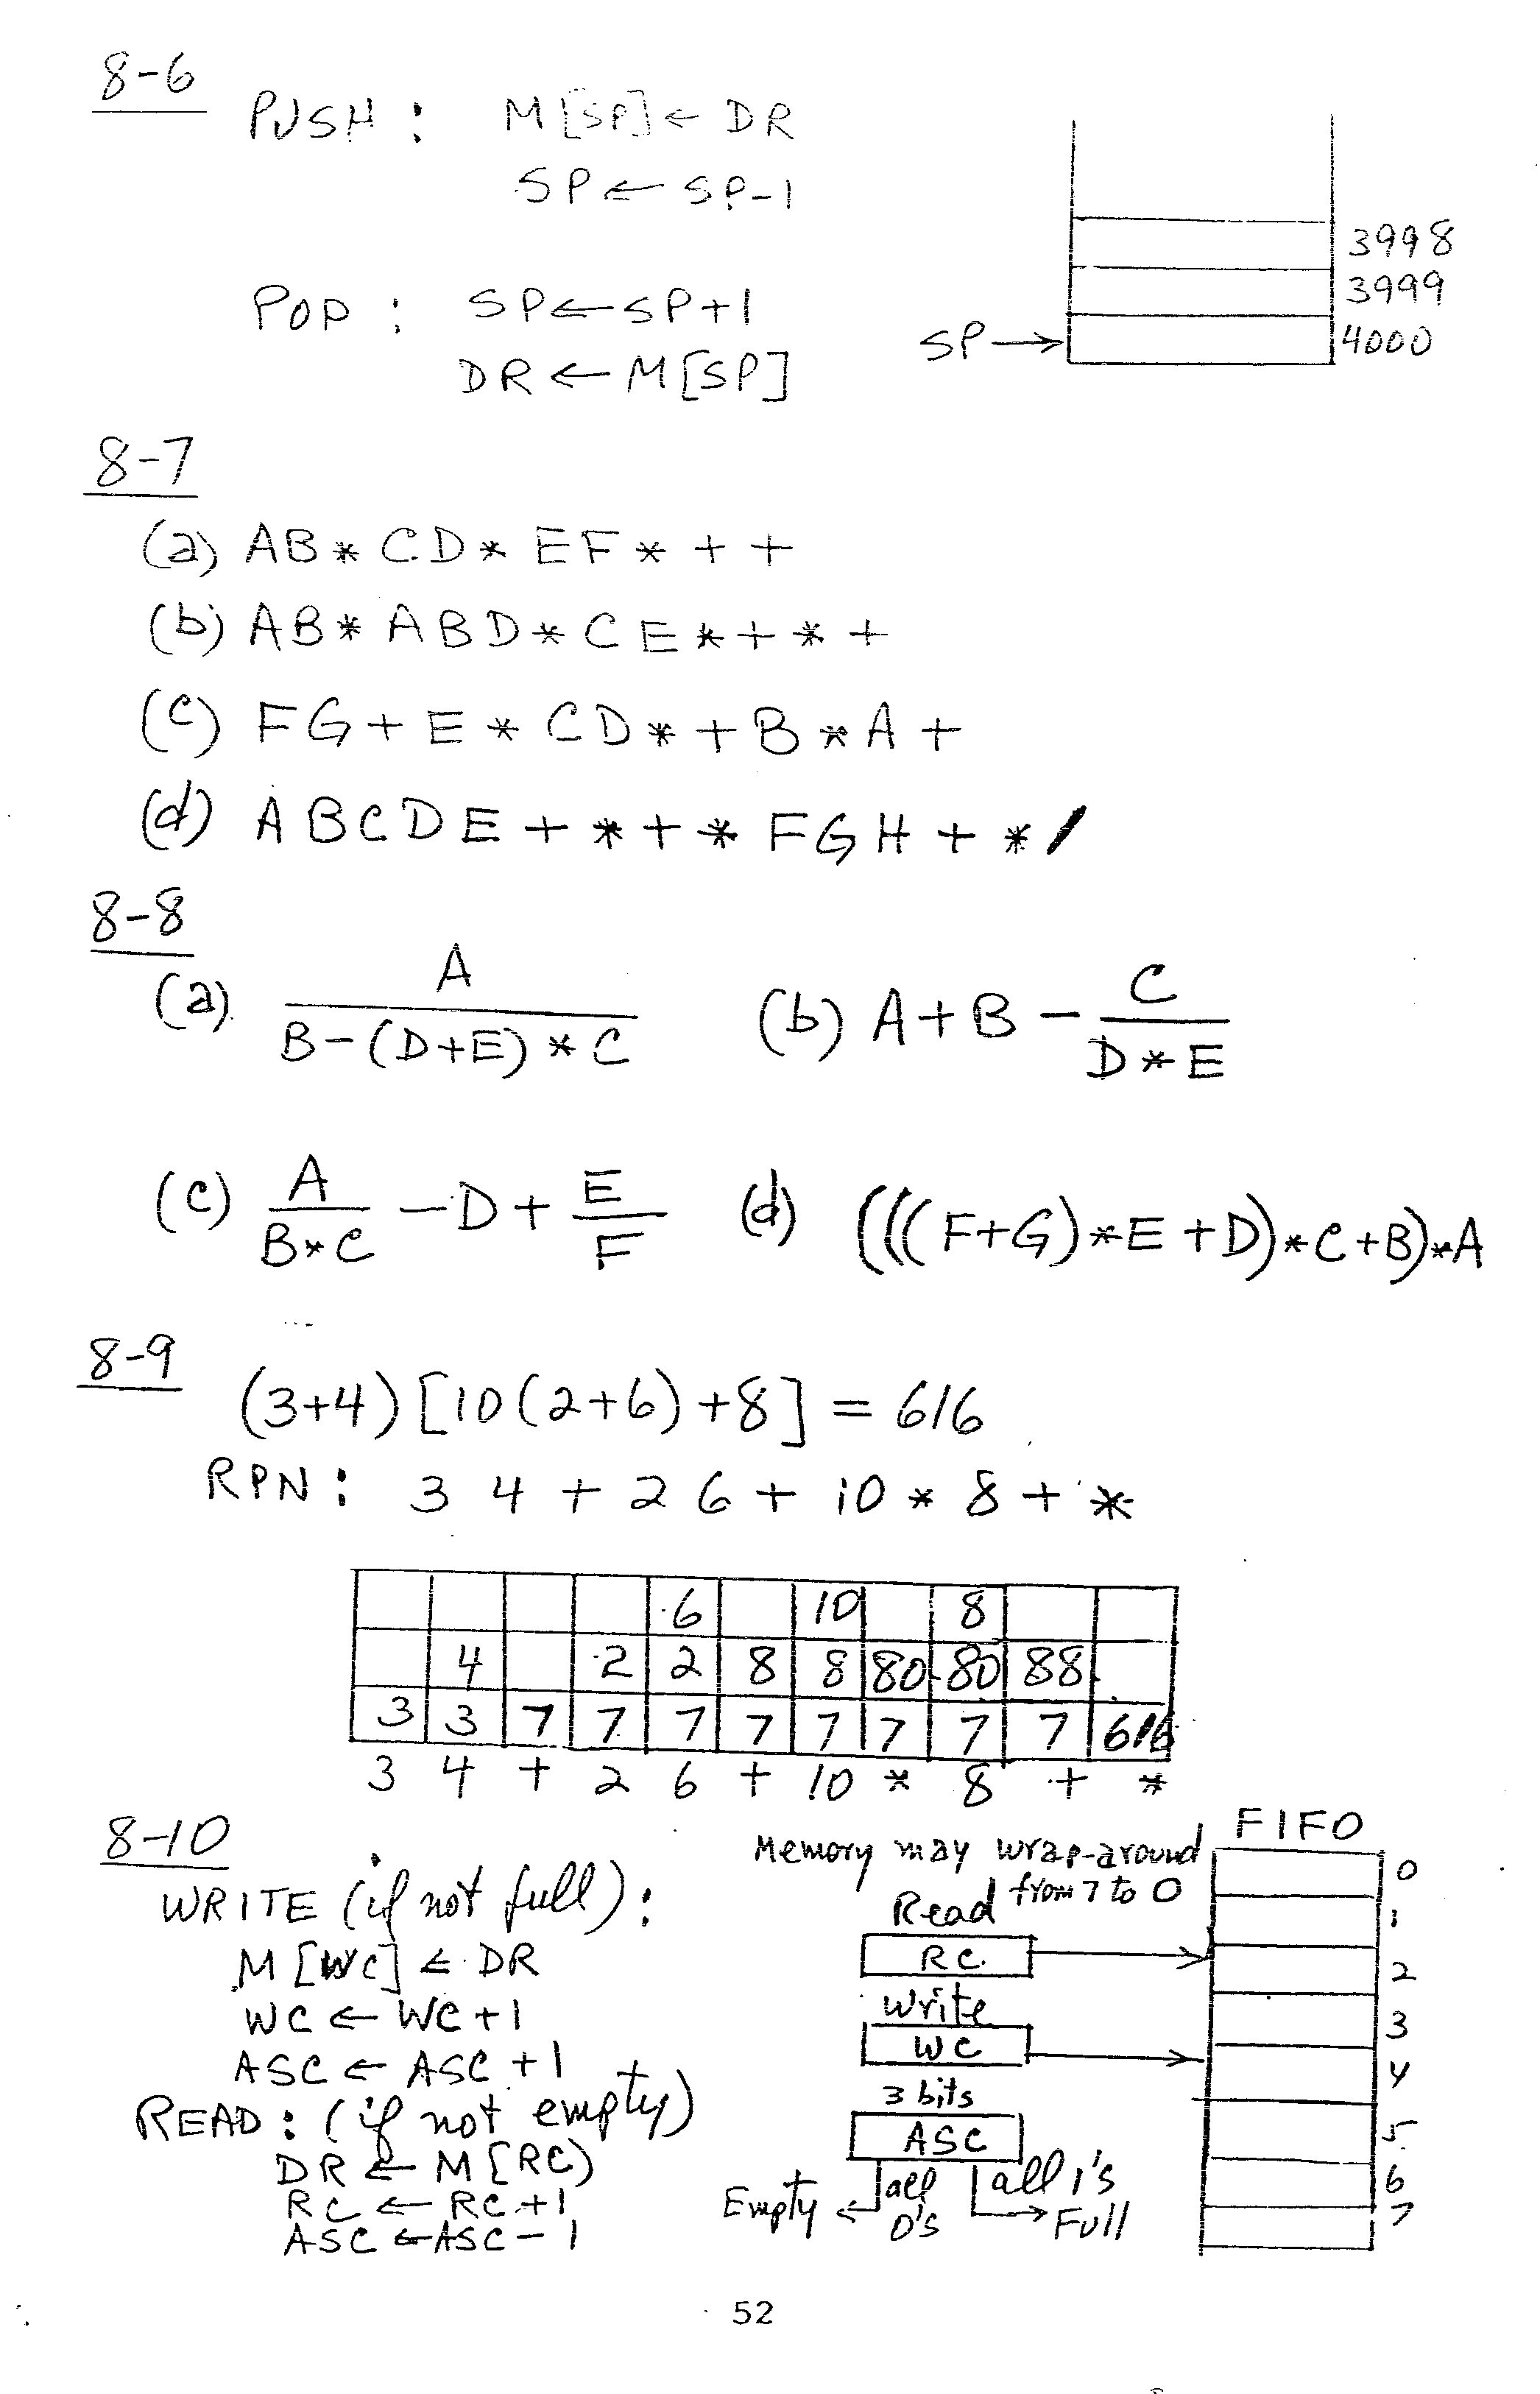 8-6
PUSH : M[SP] ← DR
SP ← SP-1
POP : SP ← SP+1
DR ← M[SP]
3998
3999
SP → 4000
8-7
(a) AB * CD * EF * + +
(b) AB * ABD * CE * + * +
(c) FG + E * CD * + B * A +
(d) ABCDE + * + * FGH + * /
8-8
(a) A
B-(D+E) * C
(b) A+B - C
D * E
(c) A
B*C
- D + E
F
(d) (((F+G)*E+D)*C+B)*A
8-9
(3+4)[10(2+6)+8] = 616
RPN : 3 4 + 2 6 + 10 * 8 + *
6 10 8
4 2 2 8 8 80 80 88
3 3 7 7 7 7 7 7 7 7 616
3 4 + 2 6 + 10 * 8 + *
8-10
WRITE (if not full) :
M[WC] ← DR
WC ← WC+1
ASC ← ASC+1
READ : (if not empty)
DR ← M[RC)
RC ← RC+1
ASC ← ASC-1
Memory may wrap-around
from 7 to 0
Read
RC
Write
WC
3 bits
ASC
Empty ← all
0's
all 1's
→ Full
FIFO
0
1
2
3
4
5
6
7
52